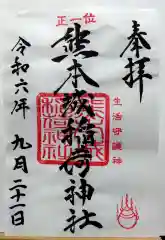 奉拝
正一位
熊本城稲荷神社
生活守護神
令和六年九月二十一日